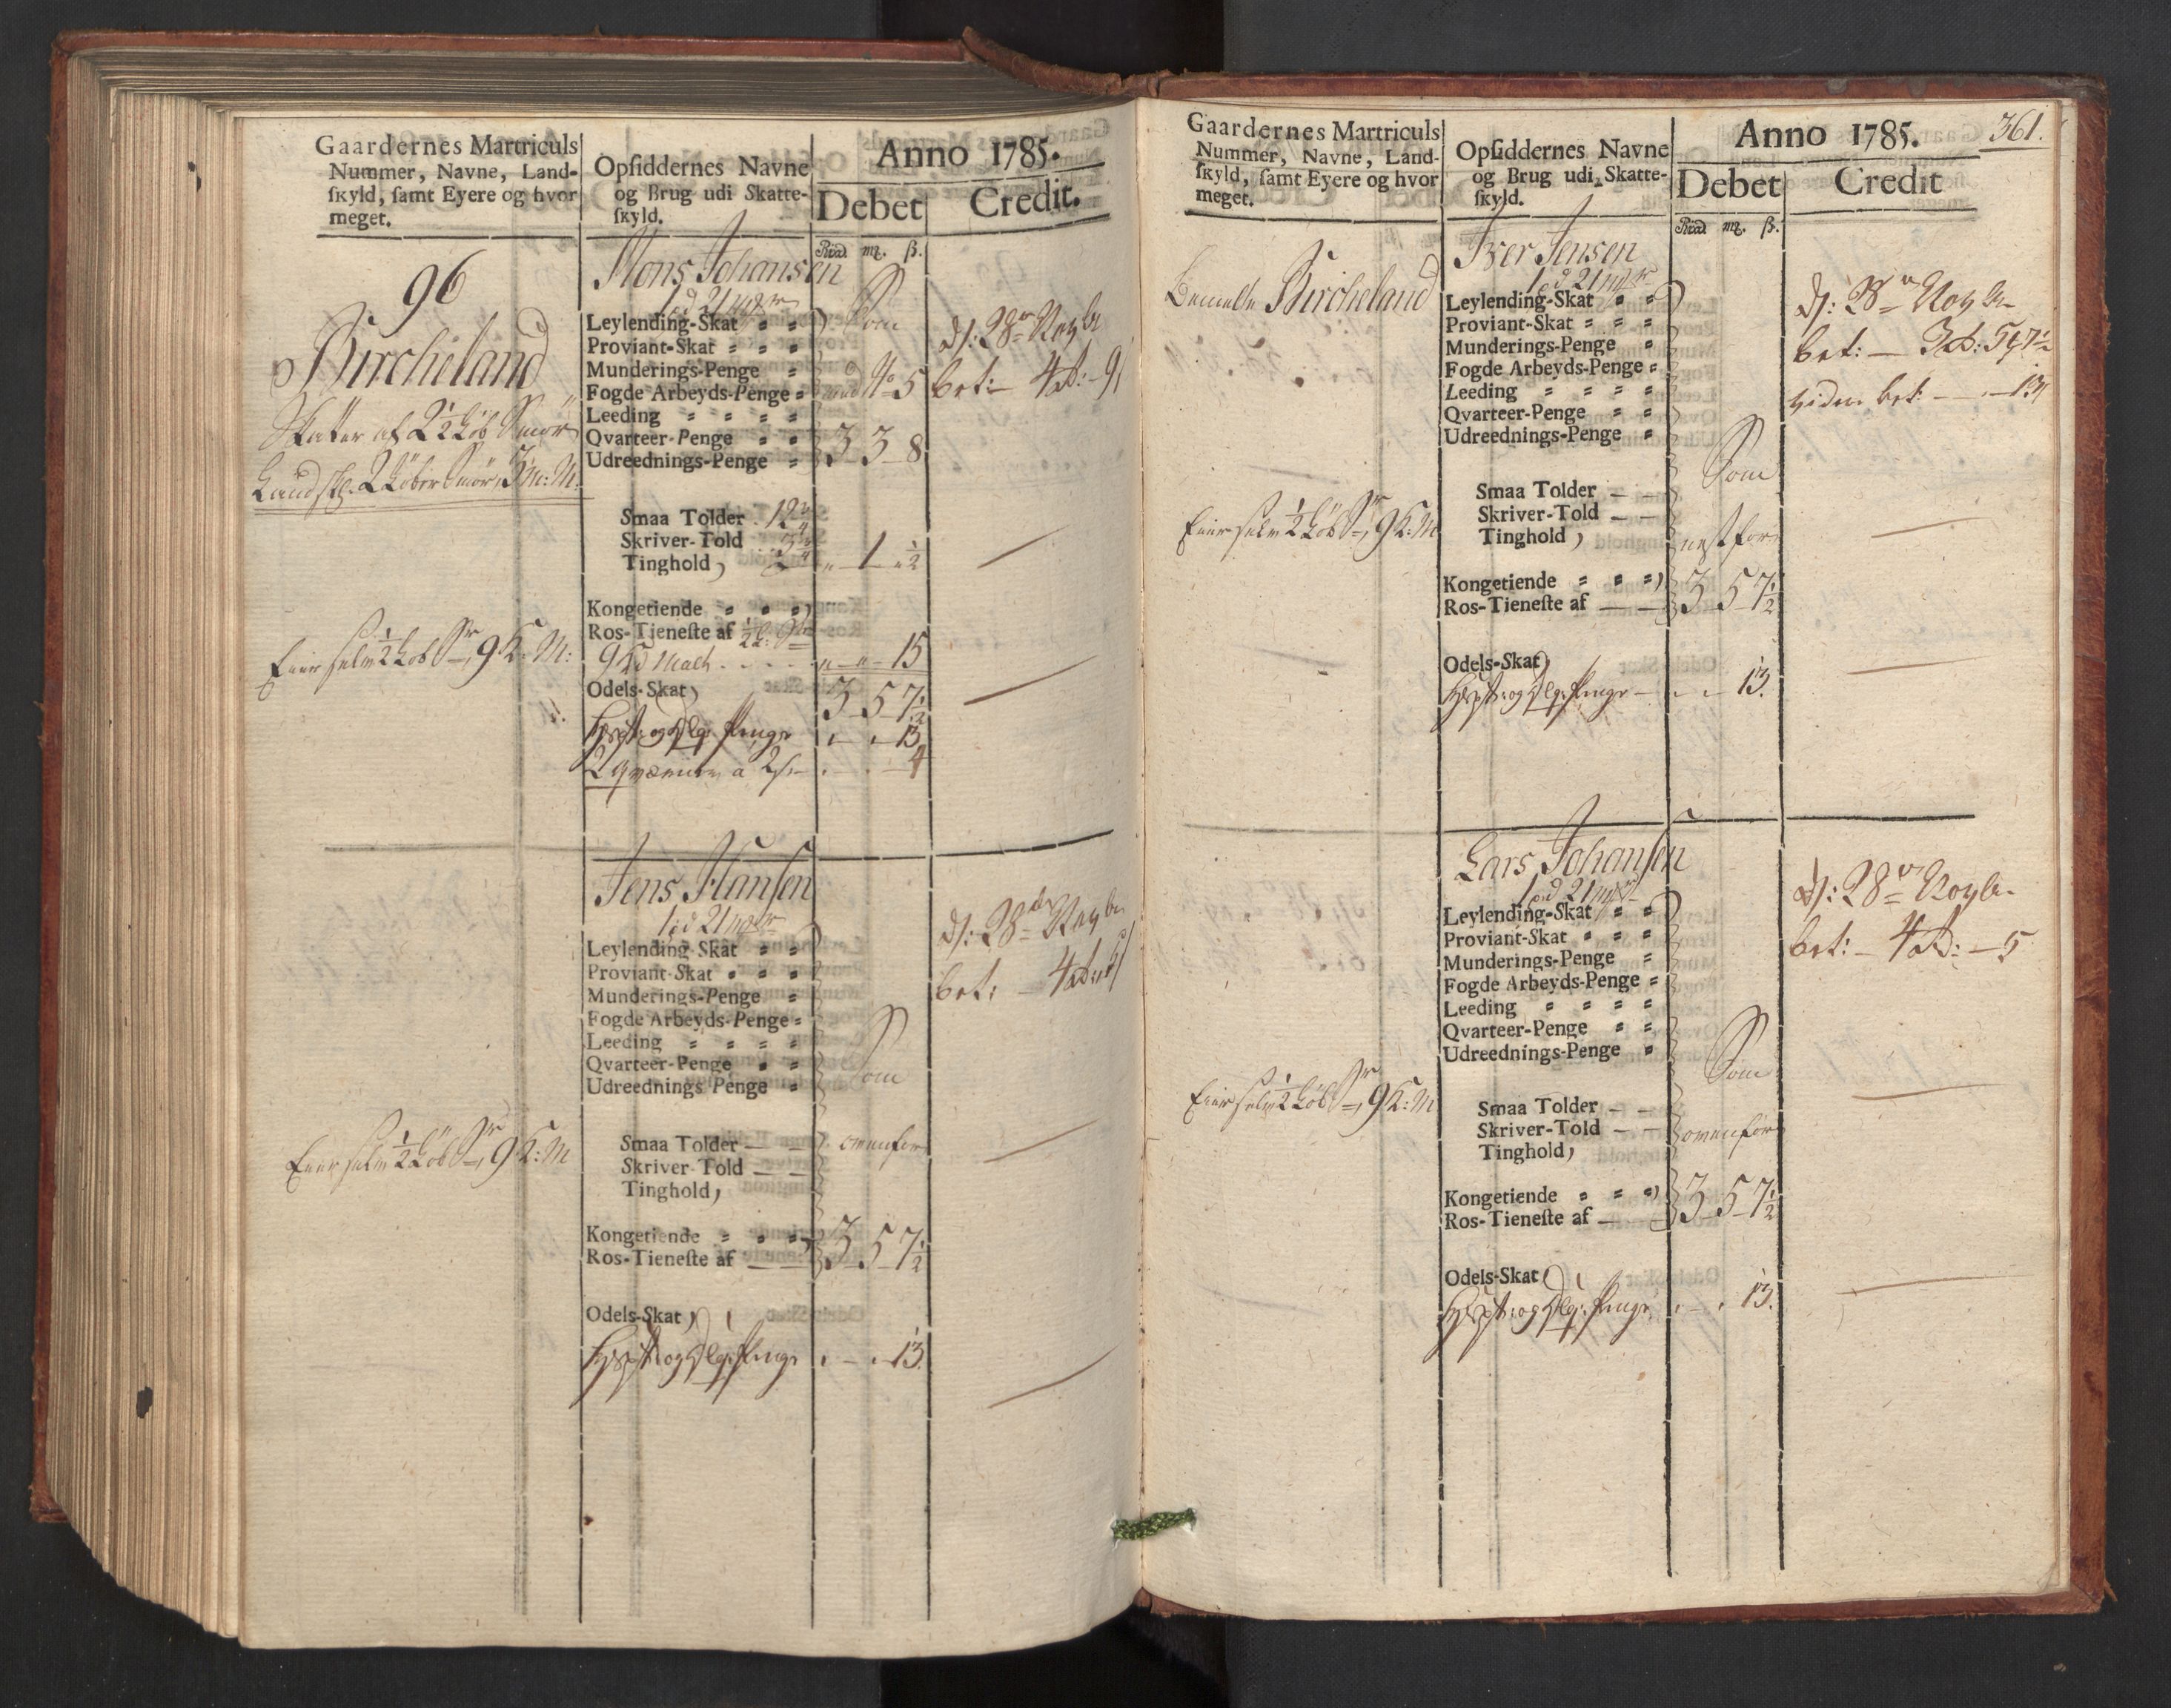 Gaardernes Martriculs
Nummer, Navne, Land-
skyld, samt Eyere og hvor
meget.
Opsiddernes Navne
og Brug udi Skatte-
skyld.
Anno 1785.
Debet
Credit.
Rixd. mʒ. ß.
96
Bircheland
Skatter af 2½ Løb Smør
Landsk. 2 Løber Smør, 3 M:
Mons Johansen
Leylending-Skat
Proviant-Skat
Munderings-Penge
Fogde Arbeyds-Penge
Leeding
Qvarteer-Penge
Udreednings-Penge
Som
No 5
3 3 8
bet: 4 9
Smaa Tolder
Skriver-Told
Tinghold,
1 ½
Eier selv ½ Løb Sr, 9 K: M:
Kongetiende
Ros-Tieneste af
15
Odels-Skat
3 5 7½
13
2 Qværner a 2
4
Jens Hansen
Leylending Skat
Proviant Skat
Munderings-Penge
Fogde Arbeyds-Penge
Leeding
Qvarteer-Penge
Udreednings Penge
Som
bet:
Eier selv ½ Løb Sr, 9 K: M
Smaa Tolder
Skriver Told
Tinghold,
ovenfor
Kongetiende
Ros-Tieneste af
3 5 7½
Odels-Skat
13.
361.
Gaardernes Martriculs
Nummer, Navne, Land-
skyld, samt Eyere og hvor
meget.
Opsiddernes Navne
og Brug udi Skatte-
skyld.
Anno 1785.
Debet
Credit
Rixd. mʒ. ß.
bemelte Bircheland
Iver Jensen
Leylending-Skat
Proviant-Skat
Munderings-Penge
Fogde Arbeyds-Penge
Leeding
Qvarteer-Penge
Udreednings-Penge
bet:
bet: 13
Eier selv ½ Løb Sr, 9 K: M
Smaa Tolder
Skriver-Told
Tinghold,
Som
nestfor
Kongetiende
Ros-Tieneste af
3 5 7½
Odels-Skat
13.
Lars Johansen
Leylending-Skat
Proviant-Skat
Munderings-Penge
Fogde Arbeyds-Penge
Leeding
Qvarteer-Penge
Udreednings-Penge
bet: 4 5
Eier selv ½ Løb Sr, 9 K: M
Smaa Tolder
Skriver-Told
Tinghold,
Som
ovenfor
Kongetiende
Ros-Tieneste af
3 5 7½
Odels-Skat
13.